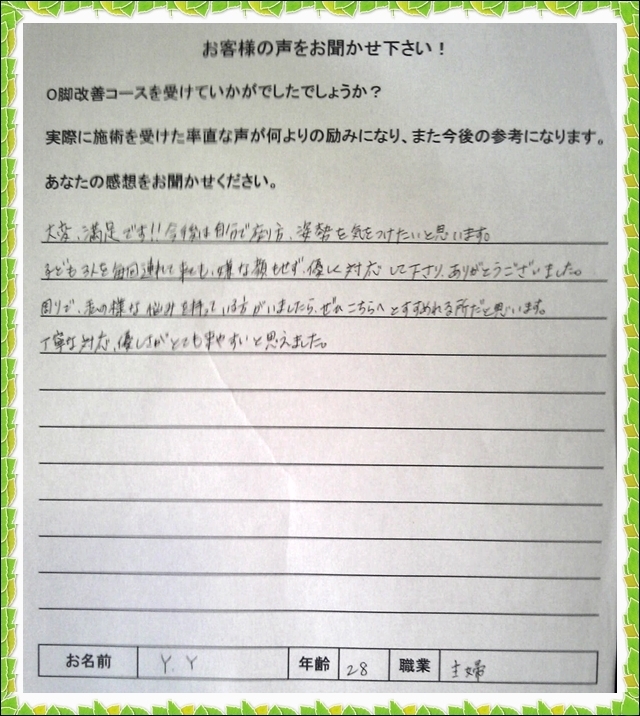 お客様の声をお聞かせ下さい！
O脚改善コースを受けていかがでしたでしょうか？
実際に施術を受けた率直な声が何よりの励みになり、また今後の参考になります。
あなたの感想をお聞かせください。
大変、満足です!!今後は自分で座り方、姿勢を気をつけたいと思います。
子ども3人を毎回連れて来ても、嫌な顔もせず、優しく対応して下さり、ありがとうございました。
周りで、私の様な悩みを持っている方がいましたら、ぜひこちらへとすすめれる所だと思います。
丁寧な対応、優しさがとても来やすいと思えました。
お名前 Y.Y 年齢 28 職業 主婦